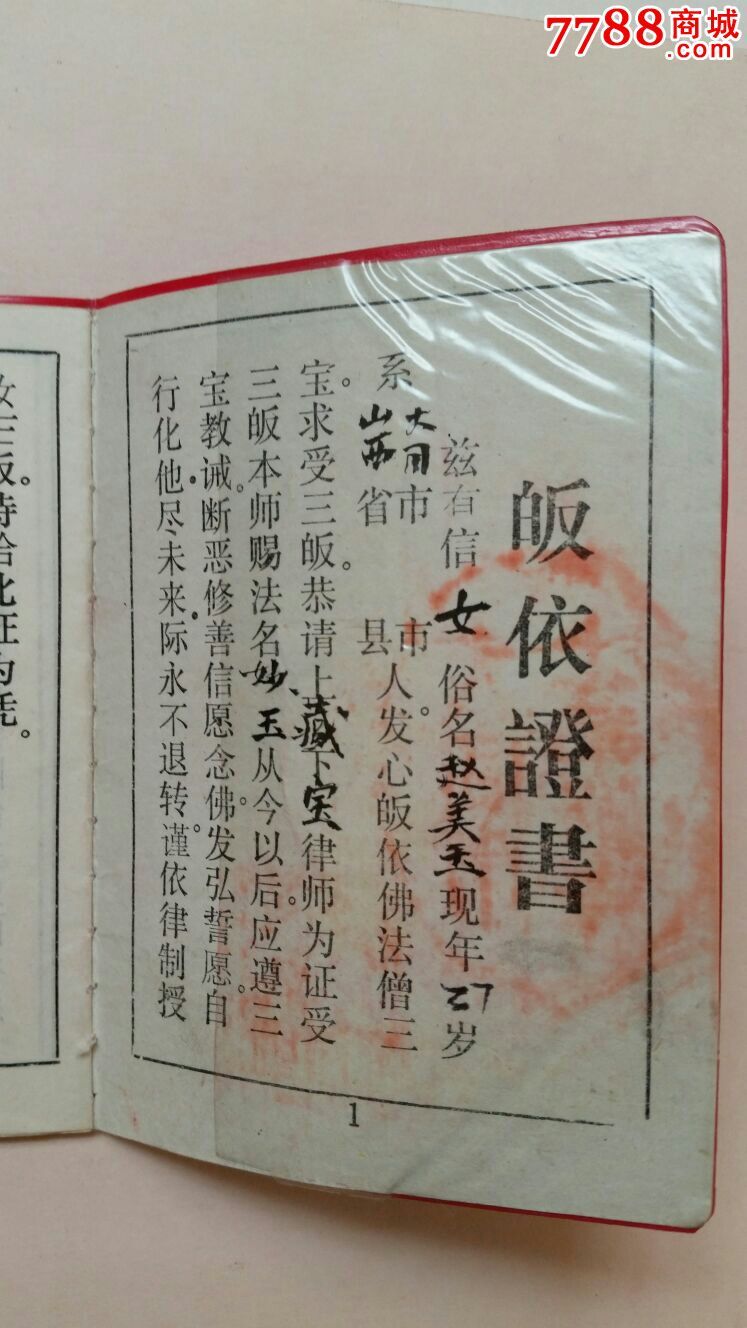 7788商城
.com
皈依證書
兹有信女俗名赵美玉现年27岁
系山西省大同市县市人。发心皈依佛法僧三
宝。求受三皈。恭请上藏下宝律师为证受
三皈本师赐法名妙玉从今以后。应遵三
宝教诫。断恶修善信愿念佛。发弘誓愿。自
行化他。尽未来。际永不退转。谨依律制授
女三皈。特给此证为凭。
1